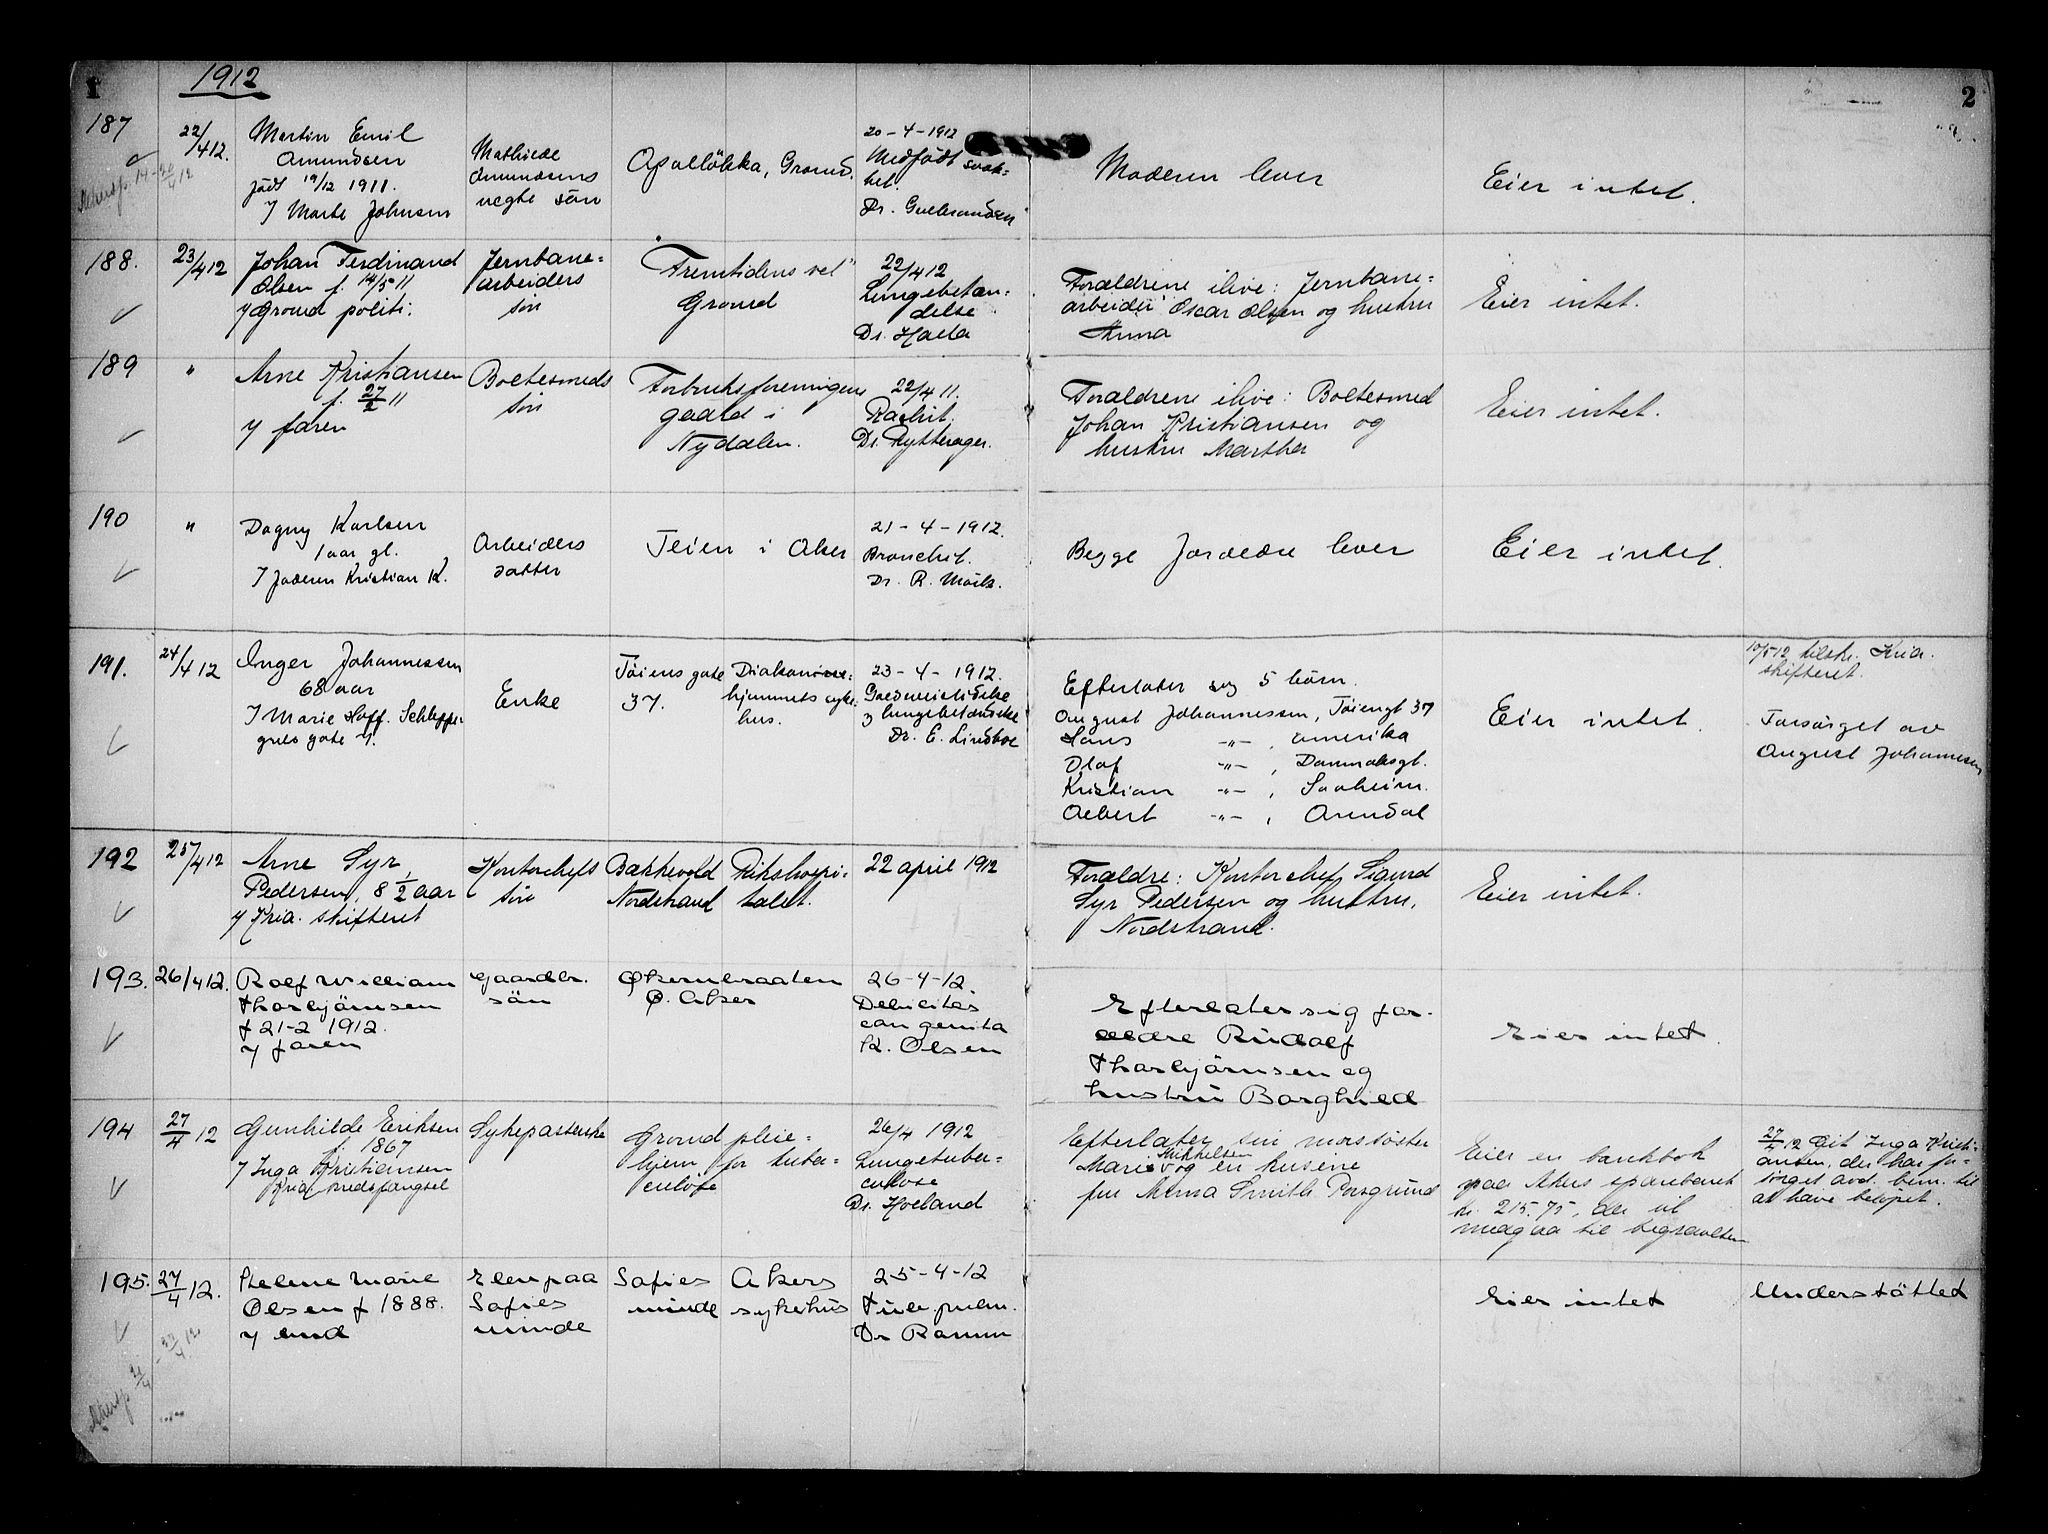 1
1912
2
187
22/4 12.
Martin Emil
Amundsen
født 19/12 1911.
Marte Johnsen
Mathilde
Amundsens
uegte sön
Apalløkka, Grorud.
20-4-1912
Medfødt svak-
het.
Dr. Gulbrandsen
Moderen lever
Eier intet.
188.
23/4 12
Johan Ferdinand
Olsen f. 14/5 11
Grorud politi.
Jernbane=
arbeiders
søn
"Fremtidens vel"
Grorud
22/4 12
Lungebetæn-
delse
Dr.
Forældrene ilive: Jernbane=
arbeider Oscar Olsen og hustru
Anna
Eier intet.
189
"
Arne Kristiansen
f. 27/2 11
faren
Boltesmeds
søn
Forbruksforeningens
gaard i
Nydalen.
22/4 11.
Rachit.
Dr. Rytterager.
Forældrene ilive: Boltesmed
Johan Kristiansen og
hustru Martha
Eier intet.
190
"
Dagny Karlsen
1 aar gl.
faderen Kristian K.
Arbeiders
datter
Teien i Aker
21-4-1912.
Bronchit.
Dr. R. Mork.
Begge forældre lever
Eier intet.
191.
24/4 12
Inger Johannessen
68 aar
Marie Hoff. Schleppe-
grels gate 7.
Enke
Tøiens gate
37.
Diakonisse-
hjemmets syke-
hus.
23-4-1912.
lungebetændelse
Dr. E. Lindboe
Efterlater sig 5 børn.
August Johannessen, Tøiengt 37
Hans -"- , Amerika
Olaf -"- , Danmarksgt.
Kristian -"- , Saaheim.
Albert -"- , Arendal
Eier intet.
10/5 12 tilskr. Kria.
skifteret.
Forsørget av
August Johannessen
192
25/4 12
Arne Syr
Pedersen, 8 1/2 aar
Kria. skifteret
Kontorchefs
søn
Bækkevold
Nordstrand
Rikshospi-
talet.
22 april 1912
Forældre: Kontorchef Sigurd
Syr Pedersen og hustru,
Nordstrand.
Eier intet.
193.
26/4 12.
Rolf William
Thorbjørnsen
f 21-2 1912.
faren
Gaardbr.
sön
Økernbraaten
Ø. Aker
26-4-12.
Debilitas
congenita
K. Olsen
Efterlater sig for-
ældre Rudolf
Thorbjörnsen og
hustru Borghild
Eier intet.
194
27/4 12
Gunhilde Eriksen
f. 1867
Inga Kristiansen
Kria Kredsfængsel
Sykepasserske
Grorud pleie-
hjem for tuber-
culøse
26/4 1912
Lungetuber-
culose
Dr. Hoeland
Efterlater sin morsøster
Marie Mikkelsen og en kusine
fru Anna Smith Porsgrund
Eier en bankbok
paa Akers sparebank
kr. 215.75, der vil
medgaa til begravelsen
27/4 12 Git Inga Kristi-
ansen, der har for-
sørget avd. bem. til
at hæve beløpet.
195.
27/4 12.
Helene Marie
Olsen f 1888.
Elev paa
Sofies
minde
Sofies
minde
Akers
sykehus
25-4-12
Tub. pulm.
Dr Ramm
Eier intet
Understøttet